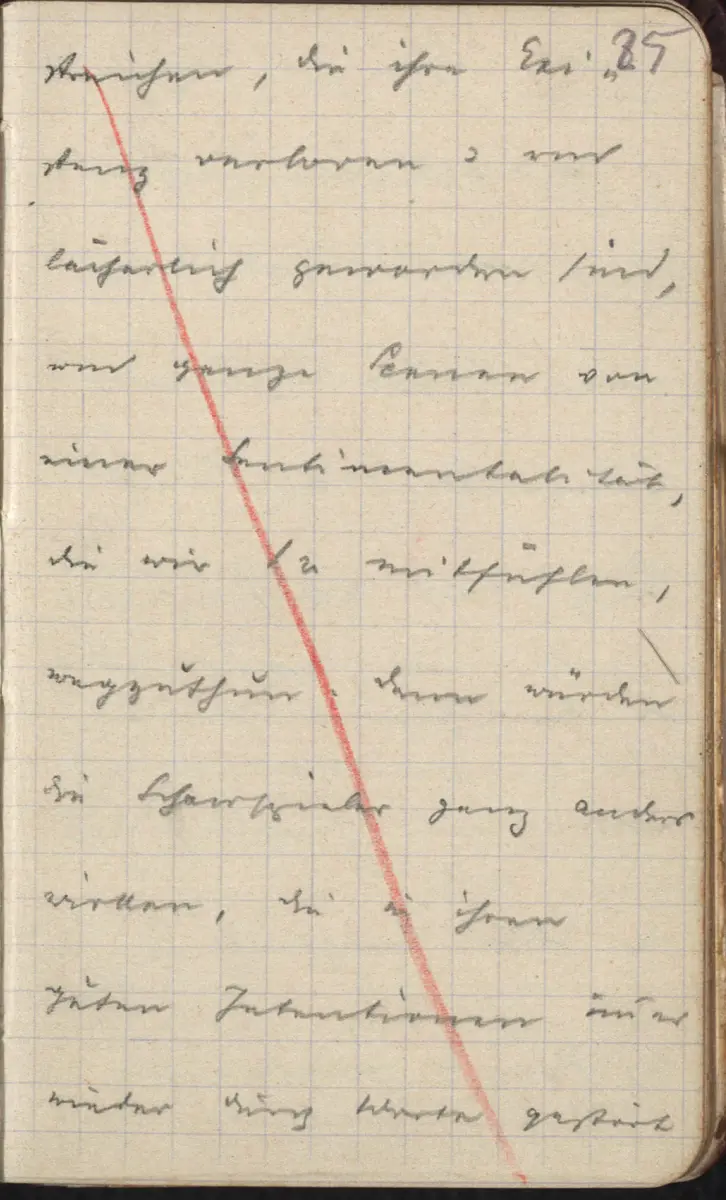 85
streichen, die ihre Exi„
stenz verloren u und
lächerlich geworden sind,
und ganze Scenen von
einer Sentimentalität,
die wir mitfühlen,
wegzuthun. denn würden
die Schauspieler ganz anders
wirken, die in ihren
guten Intentionen im̅er
wieder durch Worte gestört